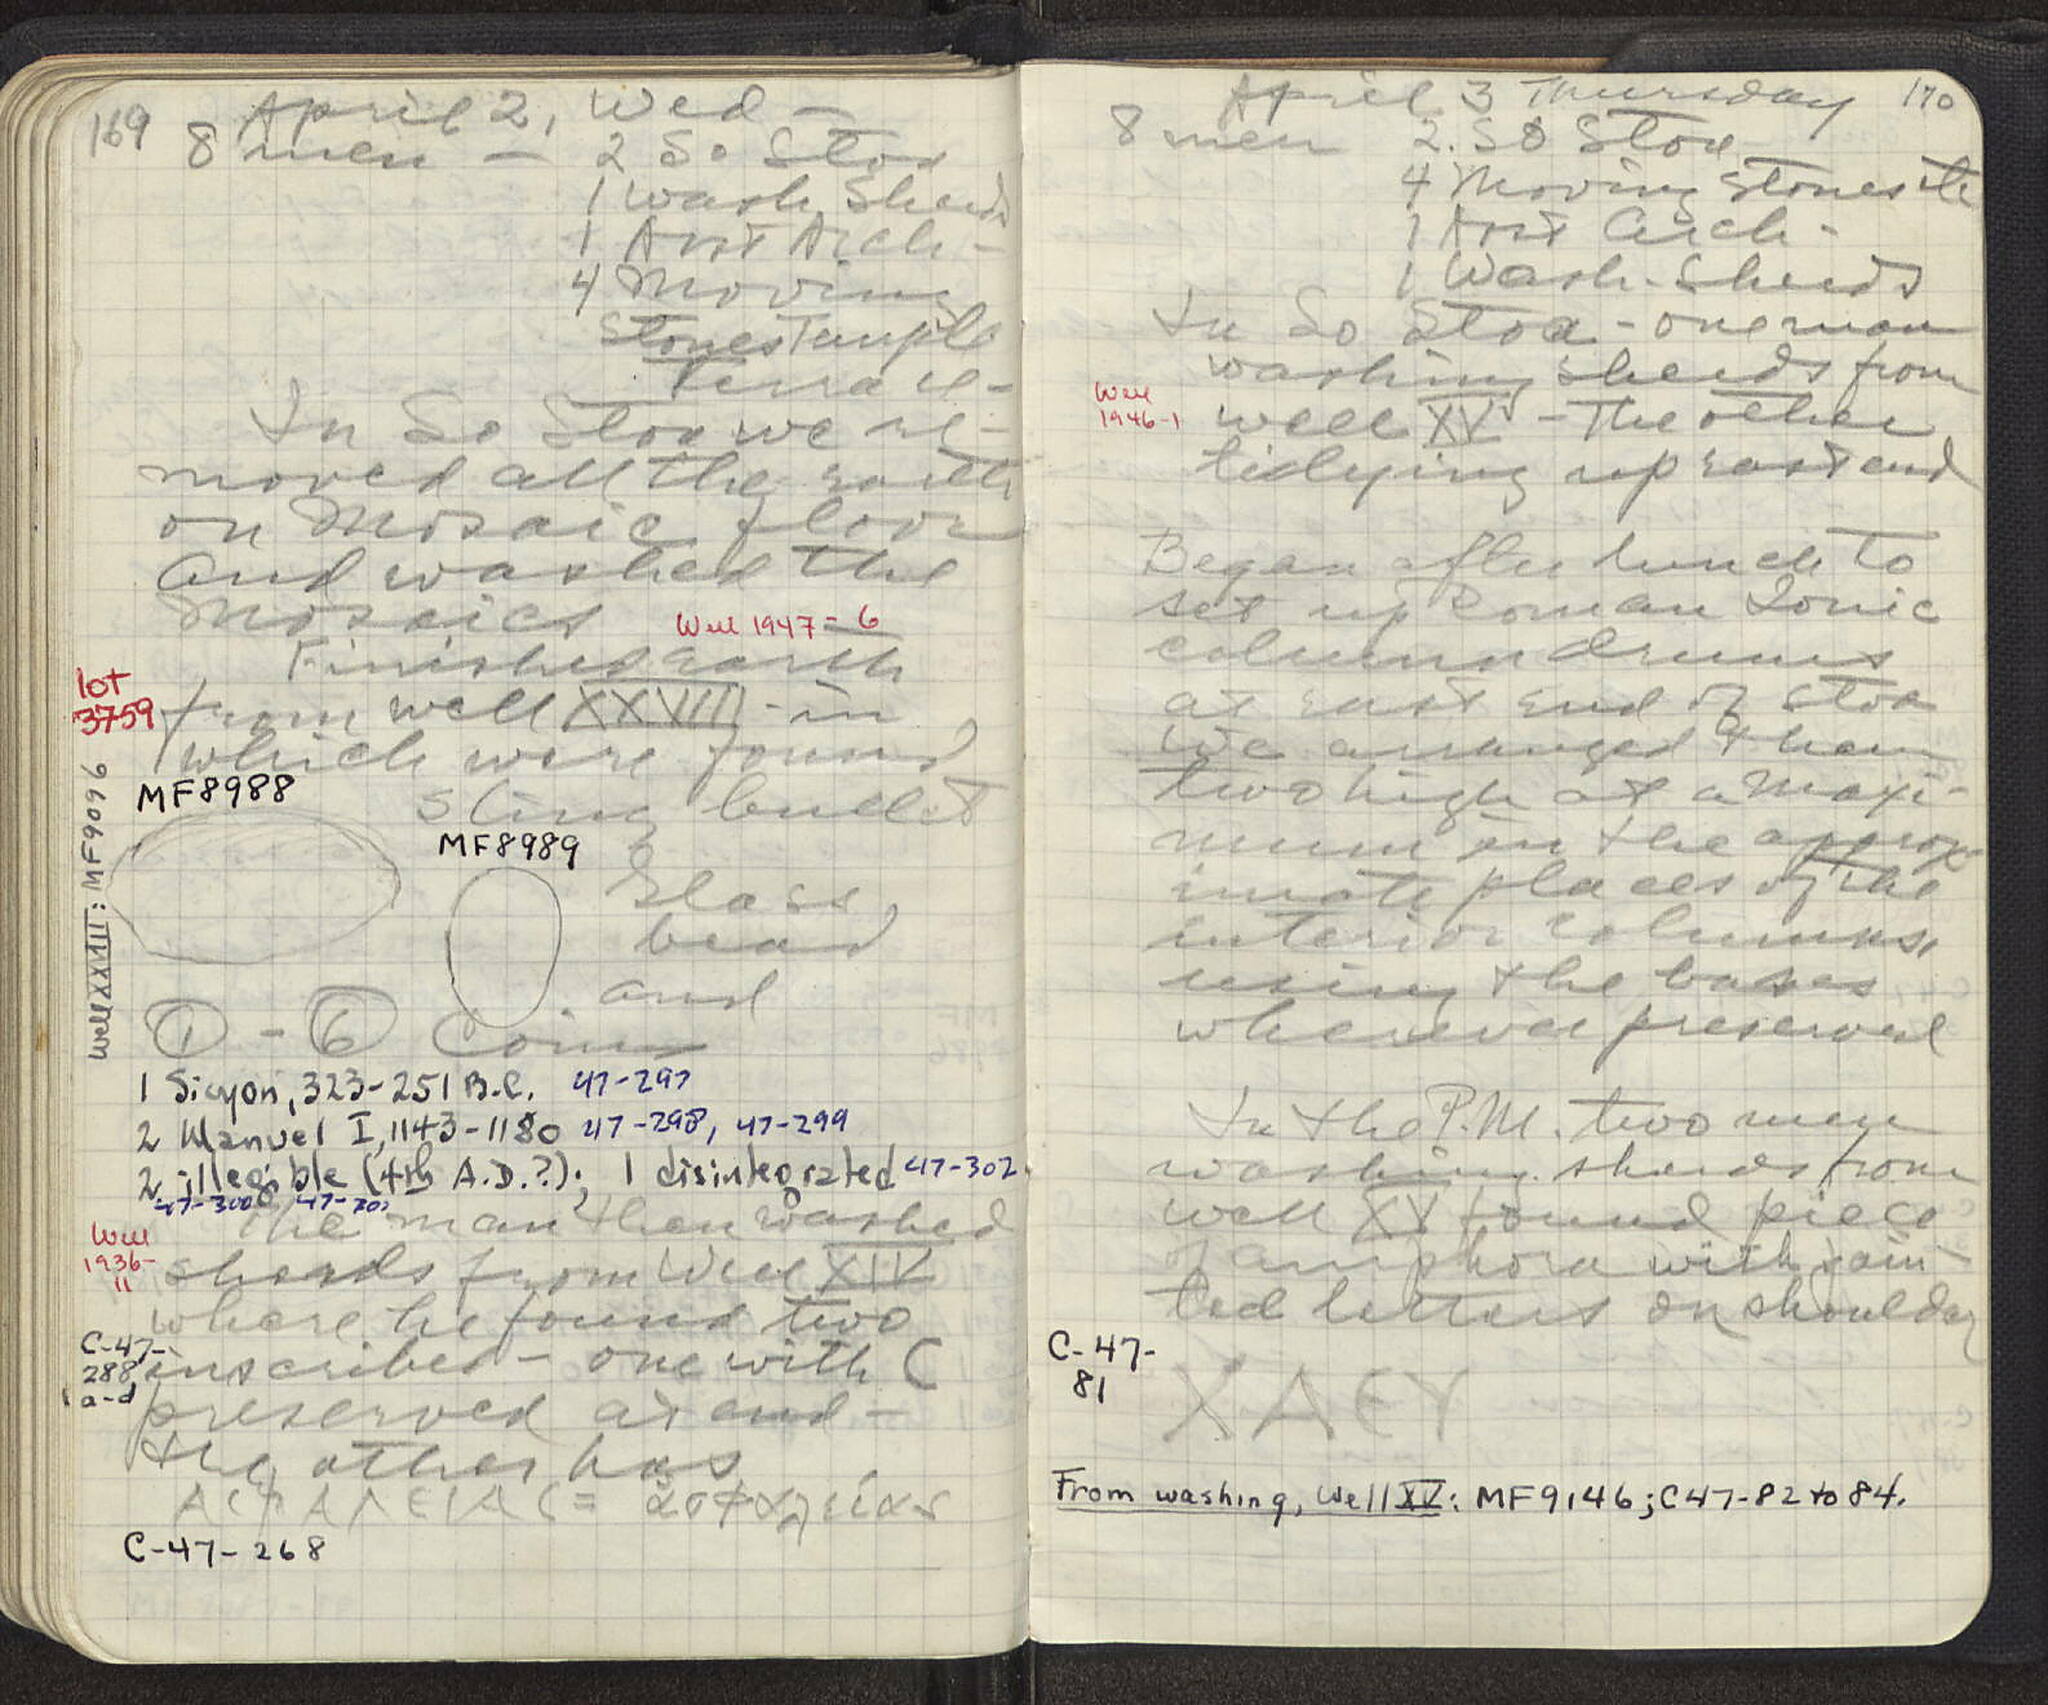 169
April 2, Wed -
8 men - 2 So Stoa
1 Wash. Sherds
1 Asst Arch -
4 Moving
Stones Temple
Terrace -
In So Stoa we re-
moved all the earth
on Mosaic floor
and washed the
Mosaics
Well 1947-6
Finished earth
lot
3759
from well XXVIII - in
which were found
MF8988
sling bullet
MF8989
Glass
bead
and
Well XXVIII: MF9096
① - ⑥ Coins
1 Sicyon, 323-251 B.C. 47-297
2 Manuel I, 1143-1180 47-298, 47-299
2 illegible (4th A.D.?); 1 disintegrated 47-302
47-300
The man then washed
Well
1936-
11
sherds from Well XIV
where he found two
C-47-
288
a-d
inscribed - one with C
preserved at end -
the other has
ΑCΦΑΛΕΙΑC = ἀσφαλείας
C-47-268
April 3 Thursday 170
8 men 2. So Stoa
4 Moving Stones
1 Asst Arch -
1 Wash. Sherds
In So Stoa - one man
washing sherds from
Well
1946-1
well XV - The other
tidying up east end
Began after lunch to
set up Roman Ionic
column drums
at east end of Stoa
We arranged them
two high at a maxi-
mum in the approx
imate places of the
interior columns,
using the bases
wherever preserved
In the P.M. two men
washing sherds from
well XV found piece
of amphora with pain-
ted letters on shoulder
C-47-
81
ΧΑΕΥ
From washing, Well XV: MF9146; C47-82 to 84.